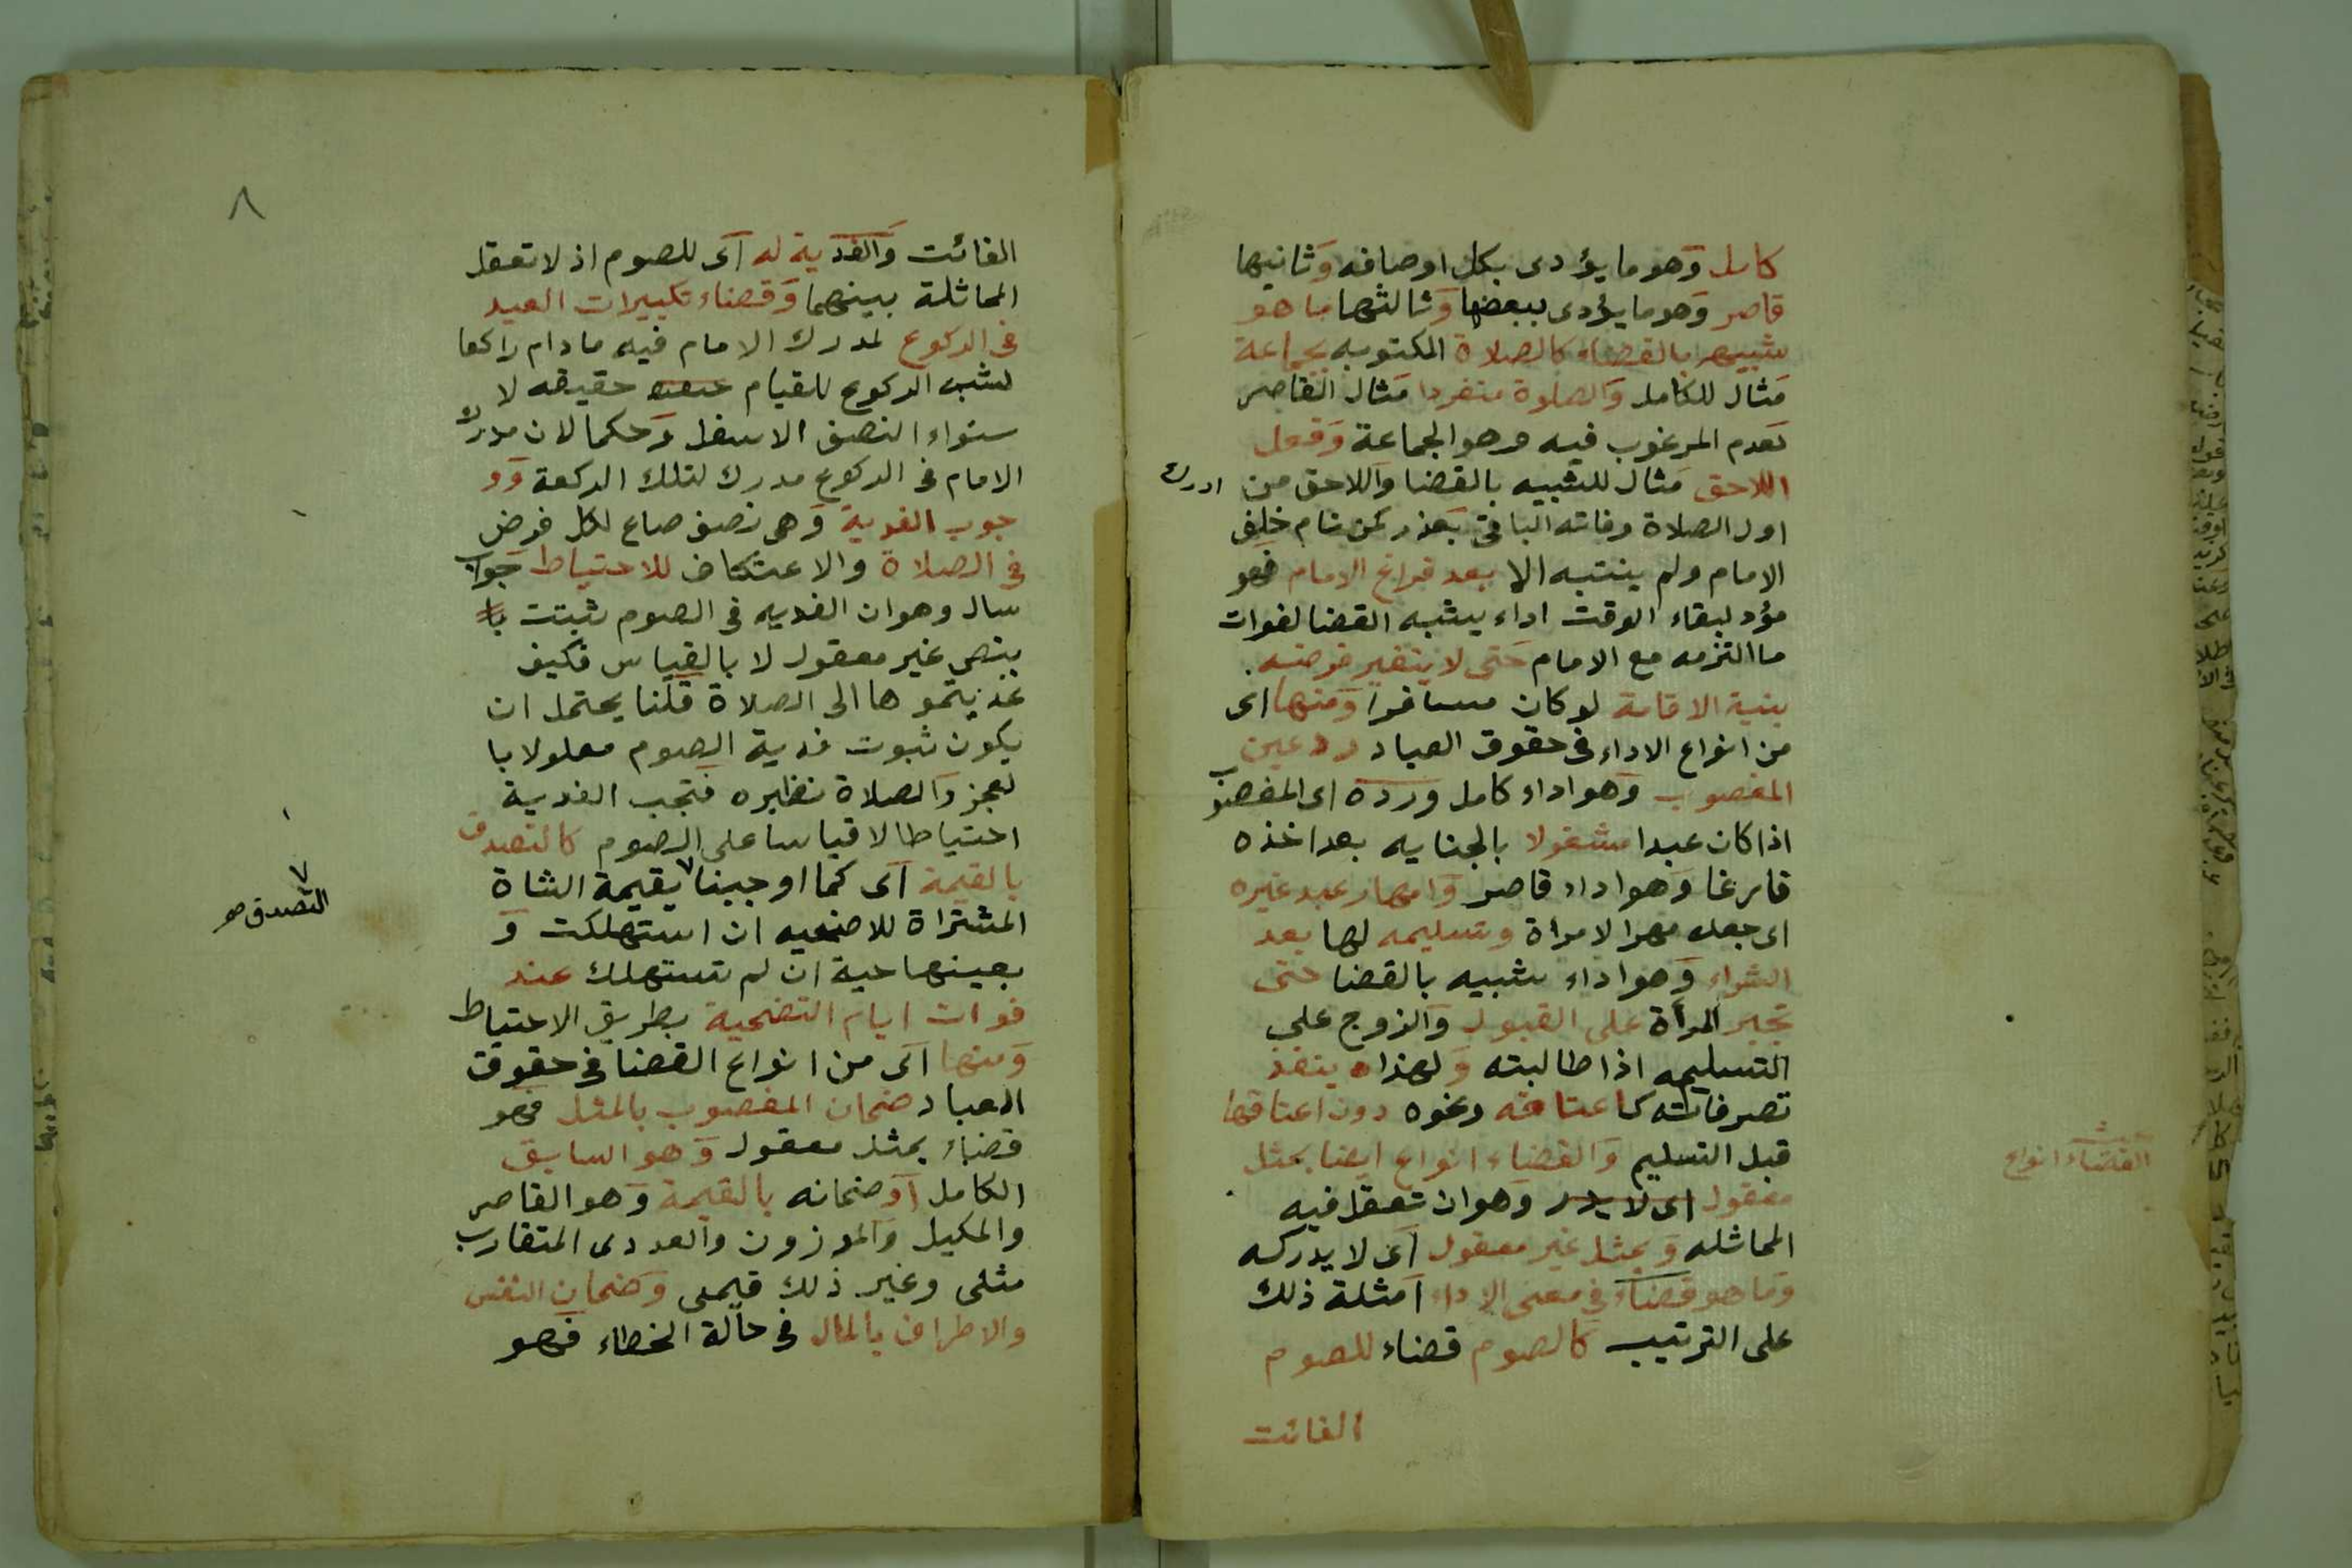 كامل وهو ما يؤدى بكل اوصافه وثانيها
قاصر وهو ما يؤدى ببعضها وثالثها ما هو
شبيه بالقضاء كالصلاة المكتوبه بجماعة
مثال للكامل والصلوة منفردا مثال القاصر
لعدم المرغوب فيه وهو الجماعة وفعل
اللاحق مثال للشبيه بالقضا واللاحق من ادرك
اول الصلاة وفاته الباقى بعذر كمن نام خلف
الامام ولم ينتبه الا بعد فراغ الامام فهو
مؤد لبقاء الوقت اداء يشبه القضا لفوات
ما التزمه مع الامام حتى لا يتغير فرضه
بنية الاقامة لو كان مسافرا ومنها اى
من انواع الاداء فى حقوق العباد رد عين
المغصوب وهو اداء كامل ورده اى المغصوب
اذا كان عبدا مشغولا بالجنايه بعد اخذه
فارغا وهو اداء قاصر وامهار عبد غيره
اى جعله مهرا لامراة وتسليمه لها بعد
الشراء وهو اداء شبيه بالقضا حتى
تجبر المرأة على القبول والزوج على
التسليم اذا طالبته ولهذا ينفذ
تصرفاته كاعتاقه ونحوه دون اعتاقها
قبل التسليم والقضاء انواع ايضا بمثل
معقول اى لا يدر وهو ان تعقل فيه
المماثله وبمثل غير معقول اى لا يدركه
وما هو قضاء فى معنى الاداء امثلة ذلك
على الترتيب كالصوم قضاء للصوم
الفائت
القضاء انواع
٨
الفائت والفدية له اى للصوم اذ لا تعقل
المماثلة بينهما وقضاء تكبيرات العيد
فى الركوع لمدرك الامام فيه ما دام راكعا
لشبه الركوع للقيام حقيقه لا
ستواء النصف الاسفل وحكما لان مدرك
الامام فى الركوع مدرك لتلك الركعة وو
جوب الفدية وهى نصف صاع لكل فرض
فى الصلاة والاعتكاف للاحتياط جواب
سال وهو ان الفديه فى الصوم ثبتت با
بنص غير معقول لا بالقياس فكيف
عديتموها الى الصلاة قلنا يحتمل ان
يكون ثبوت فدية الصوم معلولا با
لعجز والصلاة نظيره فتجب الفدية
احتياطا لا قياسا على الصوم كالتصدق
بالقيمة اى كما اوجبنا بقيمة الشاة
المشتراة للاضحيه ان استهلكت و
بعينها حية ان لم تستهلك عند
فوات ايام التضحية بطريق الاحتياط
ومنها اى من انواع القضا فى حقوق
العباد ضمان المغصوب بالمثل فهو
قضاء بمثل معقول وهو السابق
الكامل او ضمانه بالقيمة وهو القاصر
والمكيل والموزون والعددى المتقارب
مثلى وغير ذلك قيمى وضمان النفس
والاطراف بالمال فى حالة الخطاء فهو
٧
التصدق صح